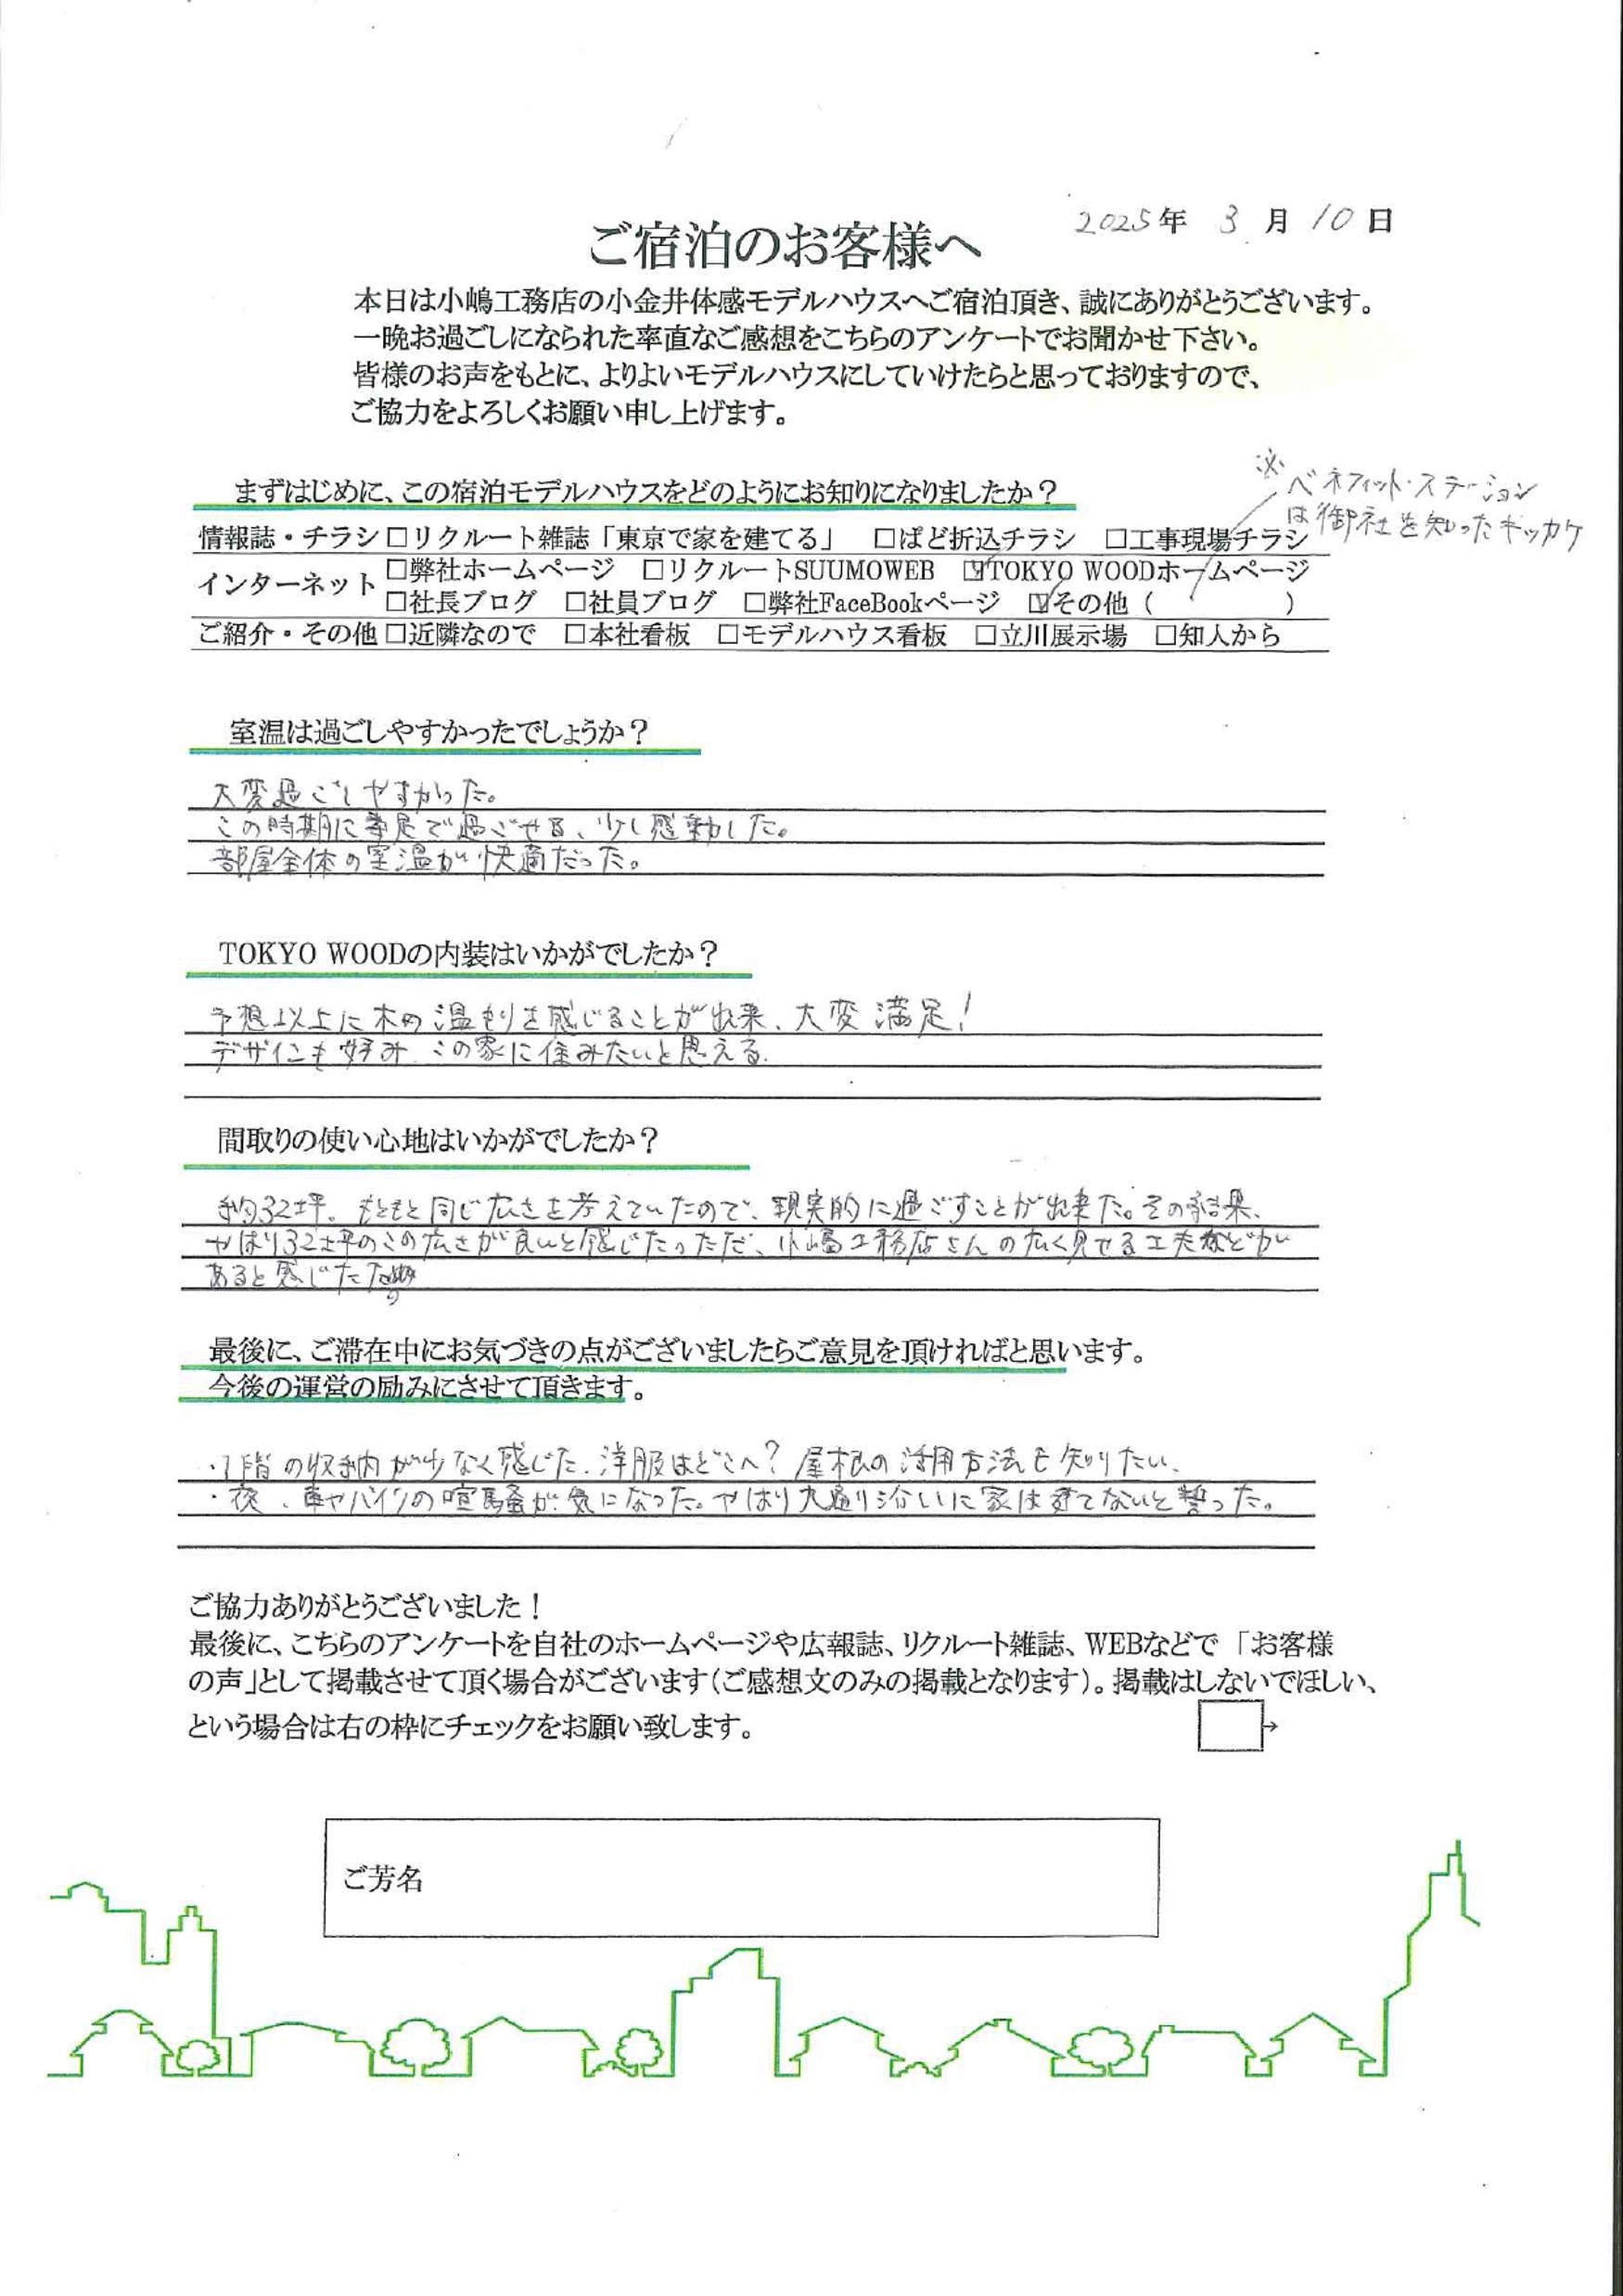 2025年 3月 10日
ご宿泊のお客様へ
本日は小嶋工務店の小金井体感モデルハウスへご宿泊頂き、誠にありがとうございます。
一晩お過ごしになられた率直なご感想をこちらのアンケートでお聞かせ下さい。
皆様のお声をもとに、よりよいモデルハウスにしていけたらと思っておりますので、
ご協力をよろしくお願い申し上げます。
まずはじめに、この宿泊モデルハウスをどのようにお知りになりましたか？
※ベネフィット・ステーション
は御社を知ったキッカケ
情報誌・チラシ □リクルート雑誌「東京で家を建てる」 □ぱど折込チラシ □工事現場チラシ
インターネット □弊社ホームページ □リクルートSUUMOWEB ☑TOKYO WOODホームページ
□社長ブログ □社員ブログ □弊社FaceBookページ ☑その他（ ）
ご紹介・その他 □近隣なので □本社看板 □モデルハウス看板 □立川展示場 □知人から
室温は過ごしやすかったでしょうか？
大変過ごしやすかった。
この時期に素足で過ごせる、少し感動した。
部屋全体の室温が快適だった。
TOKYO WOODの内装はいかがでしたか？
予想以上に木の温もりを感じることが出来、大変満足！
デザインも好み この家に住みたいと思える。
間取りの使い心地はいかがでしたか？
約32坪。もともと同じ広さを考えていたので、現実的に過ごすことが出来た。その結果、
やはり32坪のこの広さが良いと感じた。ただ、小嶋工務店さんの広く見せる工夫などが
あると感じたため
最後に、ご滞在中にお気づきの点がございましたらご意見を頂ければと思います。
今後の運営の励みにさせて頂きます。
・1階の収納が少なく感じた。洋服はどこへ？屋根の活用方法を知りたい。
・夜、車やバイクの喧騒が気になった。やはり大通り沿いに家は建てないと誓った。
ご協力ありがとうございました！
最後に、こちらのアンケートを自社のホームページや広報誌、リクルート雑誌、WEBなどで「お客様
の声」として掲載させて頂く場合がございます（ご感想文のみの掲載となります）。掲載はしないでほしい、
という場合は右の枠にチェックをお願い致します。 □→
ご芳名